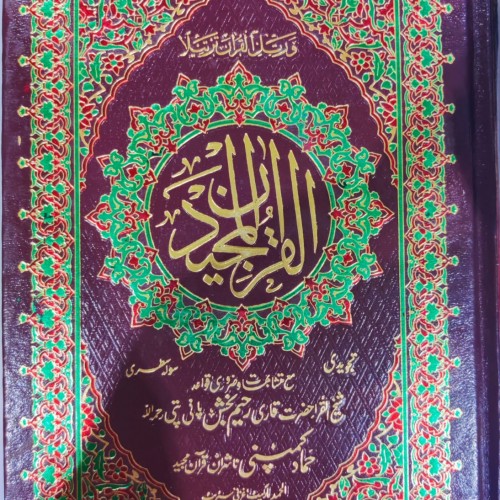 ورتل القرآن ترتيلا
القرآن المجيد
تجویدی
سولہ سطری
مع متشابہات و ضروری قواعد
شیخ القراء حضرت قاری رحیم بخش پانی پتی رحمہ اللہ
حماد کمپنی ناشران قرآن مجید